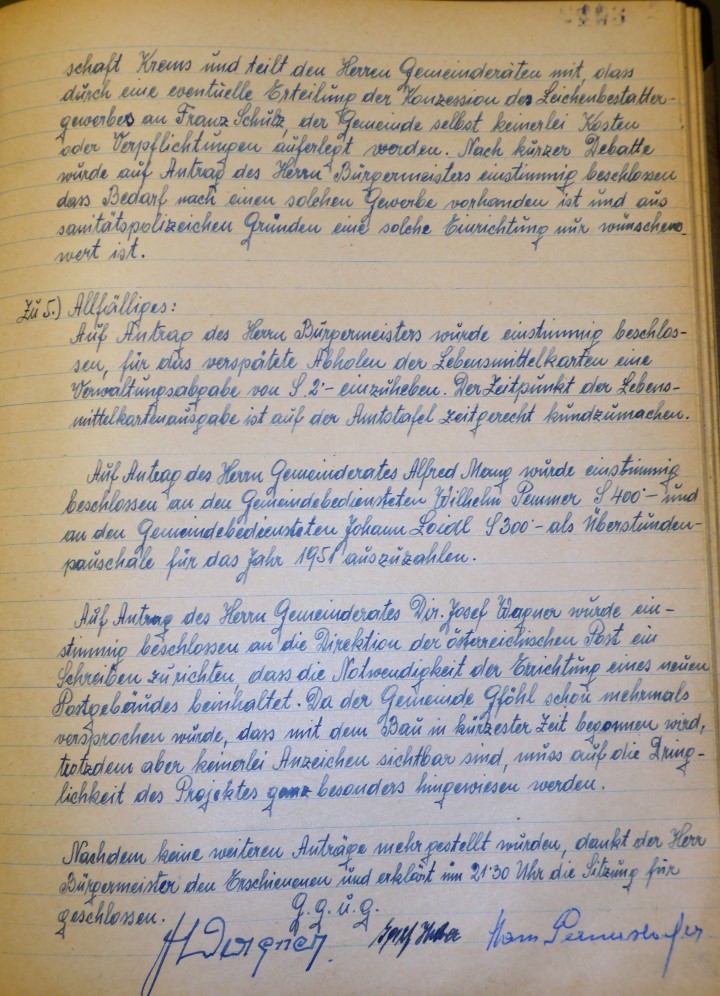 schaft Krems und teilt den Herren Gemeinderäten mit, dass
durch eine eventuelle Erteilung der Konzession des Leichenbestatter-
gewerbes an Franz Schulz, der Gemeinde selbst keinerlei Kosten
oder Verpflichtungen auferlegt werden. Nach kurzer Debatte
wurde auf Antrag des Herrn Bürgermeisters einstimmig beschlossen
dass Bedarf nach einen solchen Gewerbe vorhanden ist und aus
sanitätspolizeichen Gründen eine solche Einrichtung nur wünschens-
wert ist.
Zu 5.) Allfälliges:
Auf Antrag des Herrn Bürgermeisters wurde einstimmig beschlos-
sen, für das verspätete Abholen der Lebensmittelkarten eine
Verwaltungsabgabe von S. 2·– einzuheben. Der Zeitpunkt der Lebens-
mittelkartenausgabe ist auf der Amtstafel zeitgerecht kundzumachen.
Auf Antrag des Herrn Gemeinderates Alfred wurde einstimmig
beschlossen an den Gemeindebediensteten Wilhelm Pemmer S 400·– und
an den Gemeindebediensteten Johann Loidl S 300·– als Überstunden-
pauschale für das Jahr 1951 auszuzahlen.
Auf Antrag des Herrn Gemeinderates Dir. Josef Wagner wurde ein-
stimmig beschlossen an die Direktion der österreichischen Post ein
Schreiben zu richten, dass die Notwendigkeit der Errichtung eines neuen
Postgebäudes beinhaltet. Da der Gemeinde Gföhl schon mehrmals
versprochen wurde, dass mit dem Bau in kürzester Zeit begonnen wird,
trotzdem aber keinerlei Anzeichen sichtbar sind, muss auf die Dring-
lichkeit des Projektes ganz besonders hingewiesen werden.
Nachdem keine weiteren Anträge mehr gestellt wurden, dankt der Herr
Bürgermeister den Erschienenen und erklärt um 21·30 Uhr die Sitzung für
geschlossen.
G. g. u. g.
Josef Huber Hans